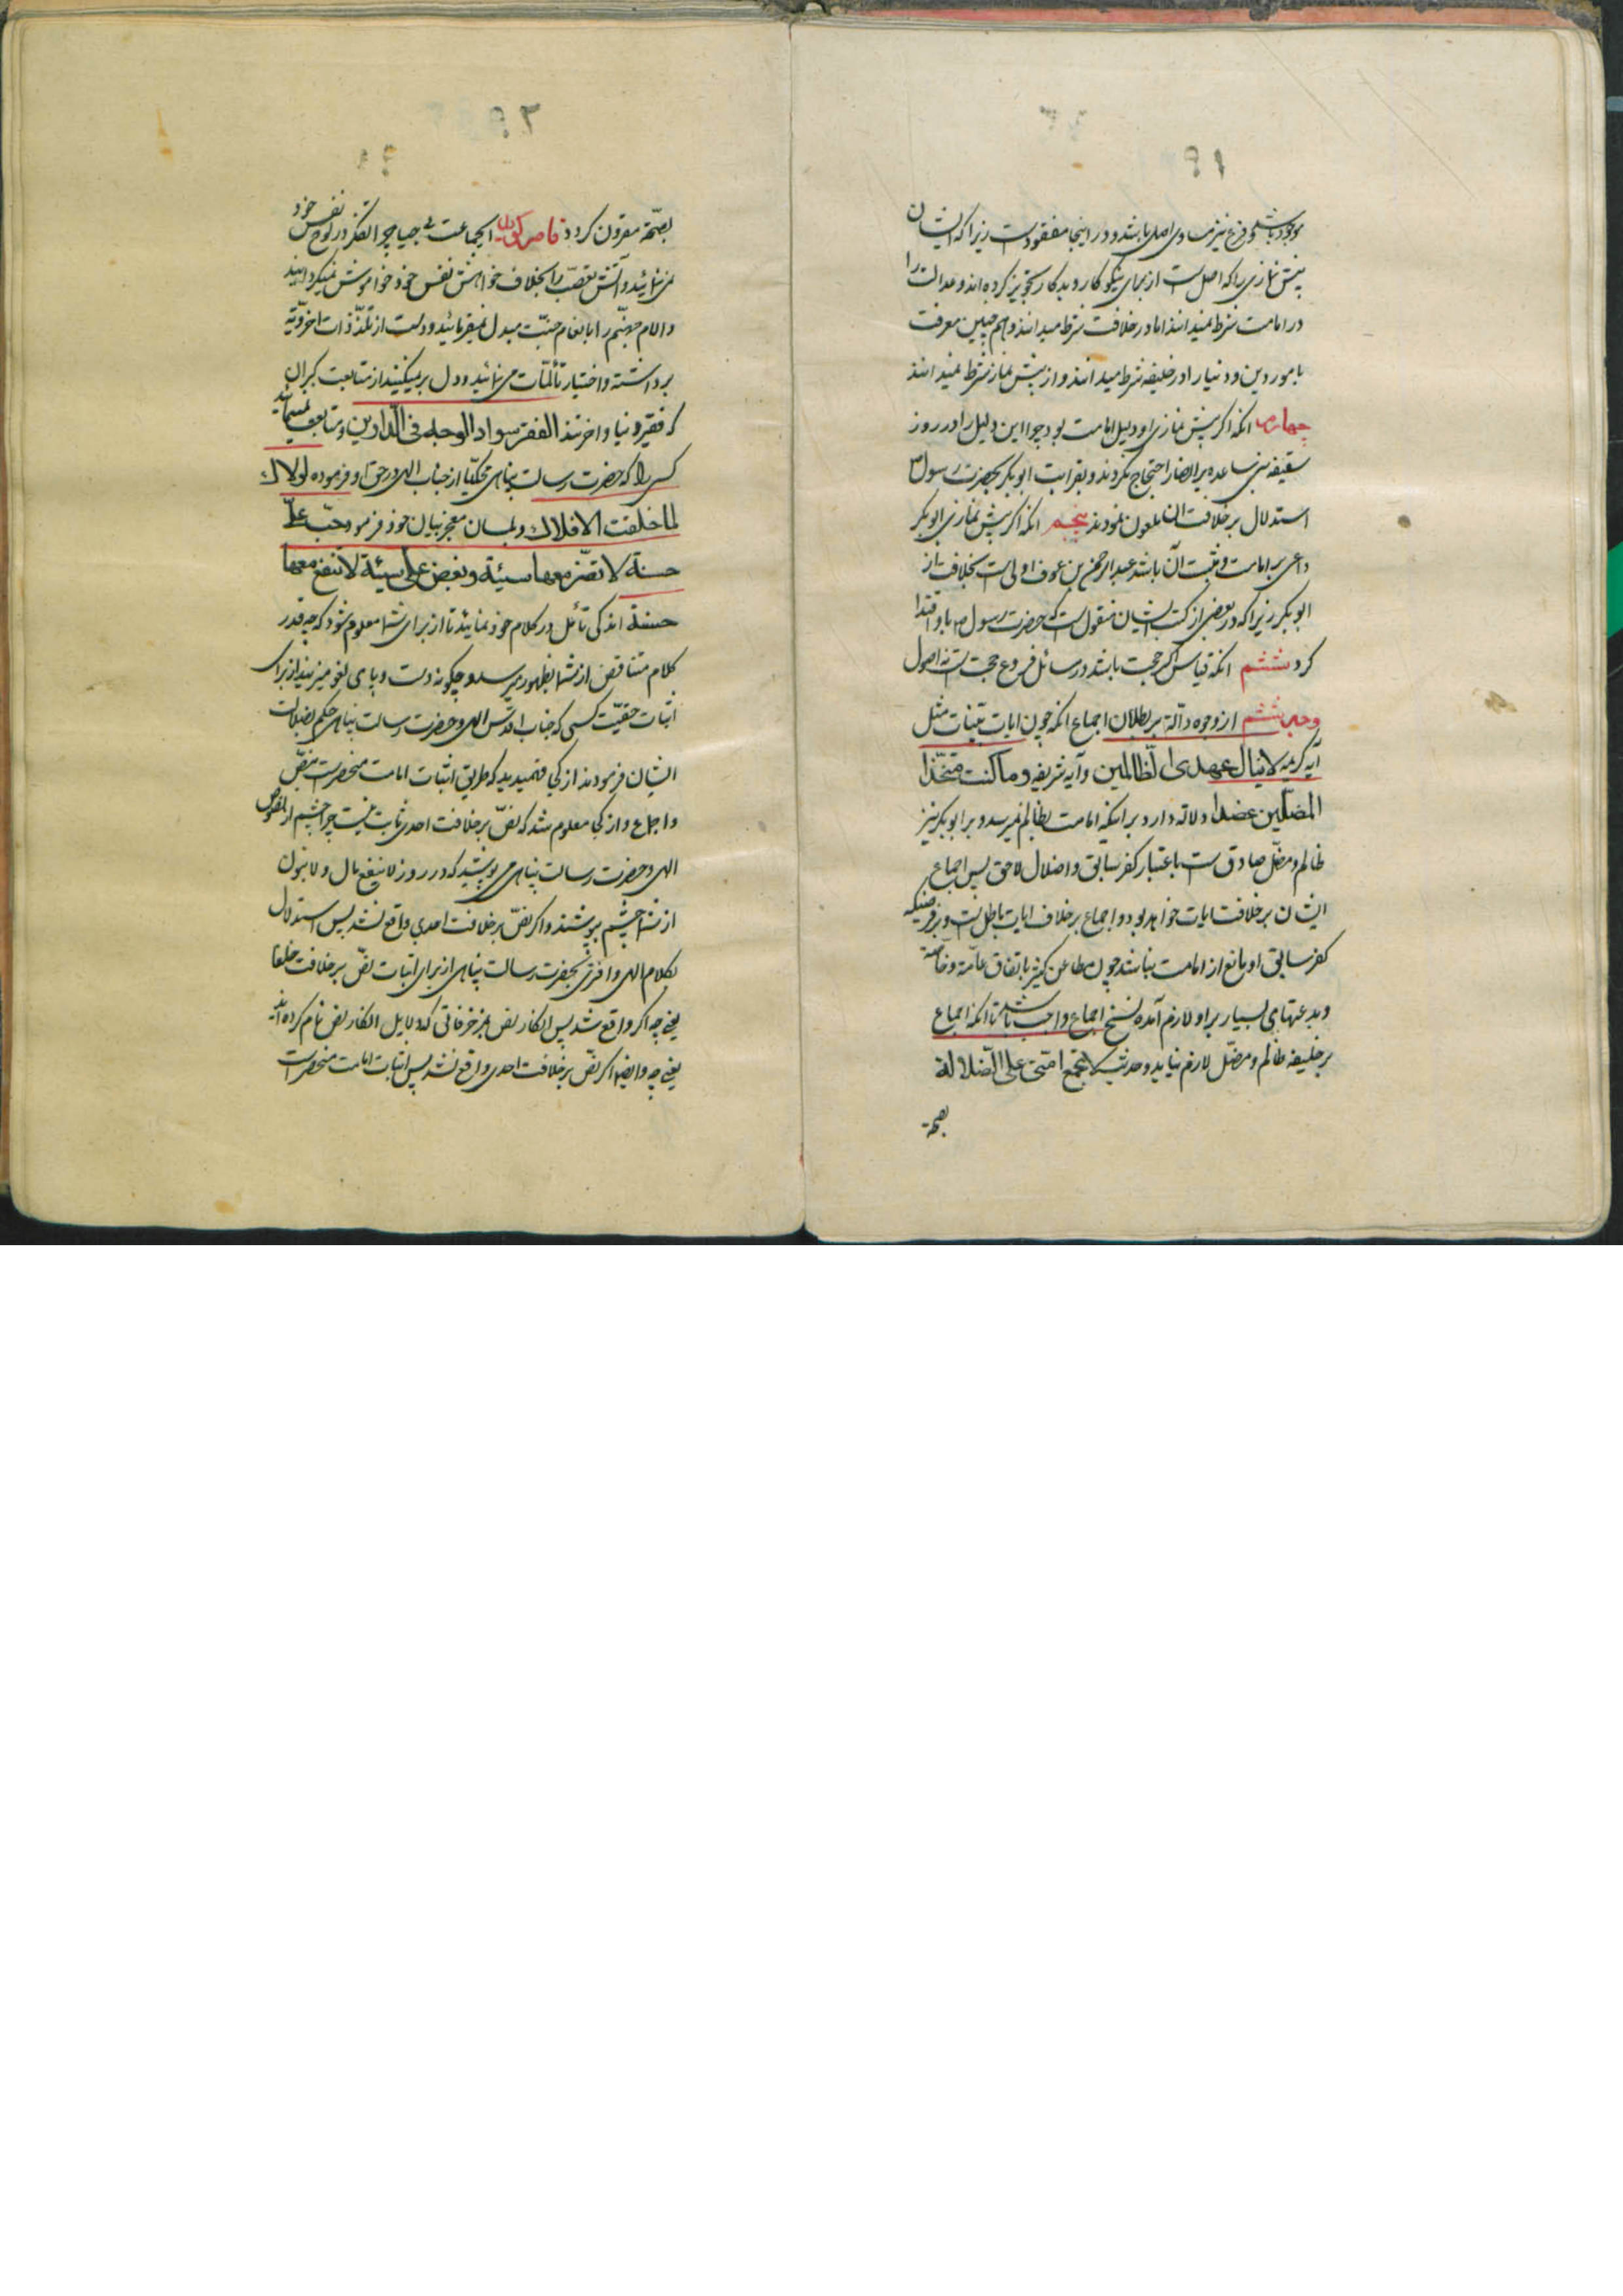 ۹۱
موجود باشد و فرع نیز مساوی اصل باشد و در اینجا مفقودست زیرا که ایشان
پیش نمازی را که اصل است از برای نیکوکار و بدکار تجویز کرده اند و عدالت را
در امامت شرط نمیدانند اما در خلافت شرط میدانند و هم چنین معرفت
بامور دین و دنیا را در خلیفه شرط میدانند و از پیش نماز شرط نمیدانند
چهارم انکه اگر پیش نمازی او دلیل امامت بود چرا این دلیل را در روز
سقیفه بنی ساعده بر انصار احتجاج نکردند و بقرابت ابو بکر بحضرت رسول
استدلال بر خلافت ان ملعون نمودند پنجم انکه اگر پیش نمازی ابو بکر
داعی بر امامت و مثبت آن باشد عبد الرحمن بن عوف اولی است بخلافت از
ابو بکر زیرا که در بعضی از کتب ایشان منقول است که حضرت رسول ص باو اقتدا
کرد ششم انکه قیاس اگر حجت باشد در مسائل فروع حجت است نه اصول
وجه ششم از وجوه دالّه بر بطلان اجماع انکه چون ایات بیّنات مثل
آیه کریمه لا ینال عهدی الظّالمین و آیه شریفه و ما کنت متخّذا
المضلّین عضدا دلاله دارد بر اینکه امامت بظالم نمیرسد و بر ابو بکر نیز
ظالم و مضلّ صادق ست باعتبار کفر سابق و اضلال لاحق پس اجماع
ایشان بر خلافت ایات خواهد بود و اجماع بر خلاف ایات باطل است و بر فرضیکه
کفر سابق او مانع از امامت نباشد چون مطاعن کثیره باتفاق عامّه و خاصّه
و بدعتهای بسیار بر او لازم آمده نسخ اجماع واجب باشد تا انکه اجماع
بر خلیفه ظالم و مضلّ لازم نیاید و حدیث لا تجتمع امّتی علی الضّلالة
بصحّة
۹۲
بصحّة مقرون گردد قاصر گوید ایجماعت بی حیا چرا تفکر در لوح نفس خود
نمی نمائید و آتش تعصّب را بخلاف خواهش نفس خود خواموش نمیگردانید
و الام جهنّم را بانعام جنّت مبدل نمیفرمائید و دست از تلذّذات اخرویّه
برداشته و اختیار تألّمات می نمائید و دل بر میکنید از متابعت کبران
که فقیر دنیا و اخرتند الفقر سواد الوجه فی الدّارین و متابعت نمینمائید
کسی را که حضرت رسالت پناهی محکیّا از جناب الهی در حق او فرموده لولاك
لما خلقت الافلاك و بلسان معجز بیان خود فرمود حبّ علیّ
حسنة لا تضرّ معها سیئة و بغض علی سیئة لا تنفع معها
حسنة اندکی تأمّل در کلام خود نمائید تا از برای شما معلوم شود که چه قدر
کلام متناقض از شما بظهور میرسد و چگونه دست و پای لغو میزنید از برای
اثبات حقیّت کسی که جناب اقدس الهی و حضرت رسالت پناهی حکم بضلالت
ایشان فرمودند از کجا فهمیدید که طریق اثبات امامت منحصرست بنصّ
و اجماع و از کجا معلوم شد که نصّ بر خلافت احدی ثابت نیست چرا چشم از نصوص
الهی و حضرت رسالت پناهی می پوشید که در روز لا ینفع مال و لا بنون
از شما چشم بپوشند و اگر نصّ بر خلافت احدی واقع نشد پس استدلال
بکلام الهی و افتری بحضرت رسالت پناهی از برای اثبات نصّ بر خلافت خلفا
یعنی چه اگر واقع شد پس انکار نص بمزخرفاتی که دلایل انکار نص نام کرده اید
یعنی چه و ایضا اگر نصّ بر خلافت احدی واقع نشد پس اثبات امامت منحصرست